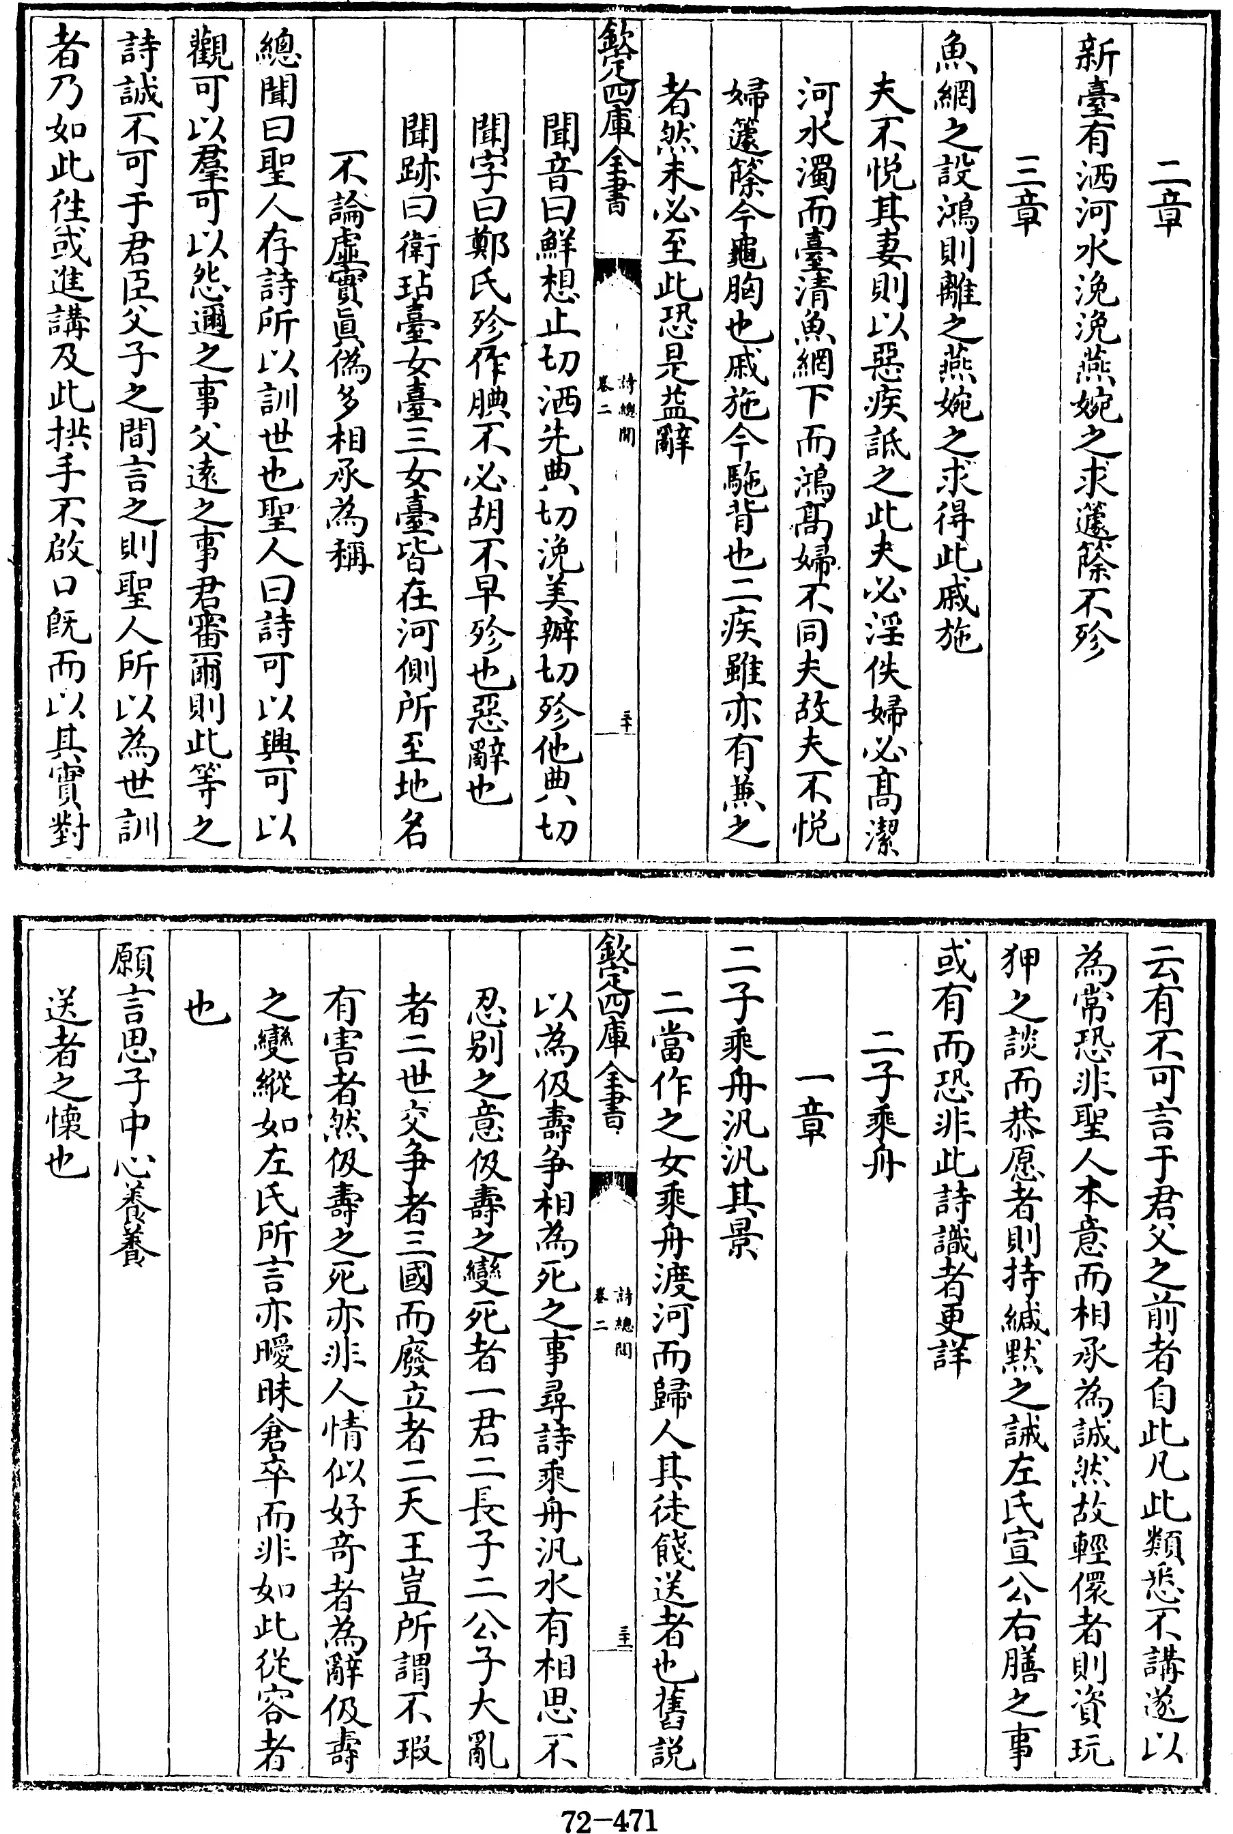 二章
新臺有洒河水浼浼燕婉之求籧篨不殄
三章
魚網之設鴻則離之燕婉之求得此戚施
夫不悅其妻則以惡疾詆之此夫必淫佚婦必髙潔
河水濁而臺清魚網下而鴻髙婦不同夫故夫不悅
婦籧篨今龜胸也戚施今駞背也二疾雖亦有兼之
者然未必至此恐是益辭
欽定四庫全書
詩總聞
卷二
三十
聞音曰鮮想止切洒先典切浼美辦切殄他典切
聞字曰鄭氏殄作腆不必胡不早殄也惡辭也
聞跡曰衛玷臺女臺三女臺皆在河側所至地名
不論虛實眞偽多相承為稱
總聞曰聖人存詩所以訓世也聖人曰詩可以興可以
觀可以羣可以怨邇之事父逺之事君審爾則此等之
詩誠不可于君臣父子之間言之則聖人所以為世訓
者乃如此徃或進講及此拱手不啟口旣而以其實對
云有不可言于君父之前者自此凡此類悉不講遂以
為常恐非聖人本意而相承為誠然故輕儇者則資玩
狎之談而恭愿者則持緘黙之誡左氏宣公右膳之事
或有而恐非此詩識者更詳
二子乗舟
一章
二子乗舟汎汎其景
二當作之女乗舟渡河而歸人其徒餞送者也舊説
欽定四庫全書
詩總聞
卷二
三十一
以為伋壽争相為死之事尋詩乗舟汎水有相思不
忍别之意伋壽之變死者一君二長子二公子大亂
者二世交争者三國而廢立者二天王豈所謂不瑕
有害者然伋壽之死亦非人情似好竒者為辭伋壽
之變縱如左氏所言亦曖昧倉卒而非如此從容者
也
願言思子中心養養
送者之懷也
72-471